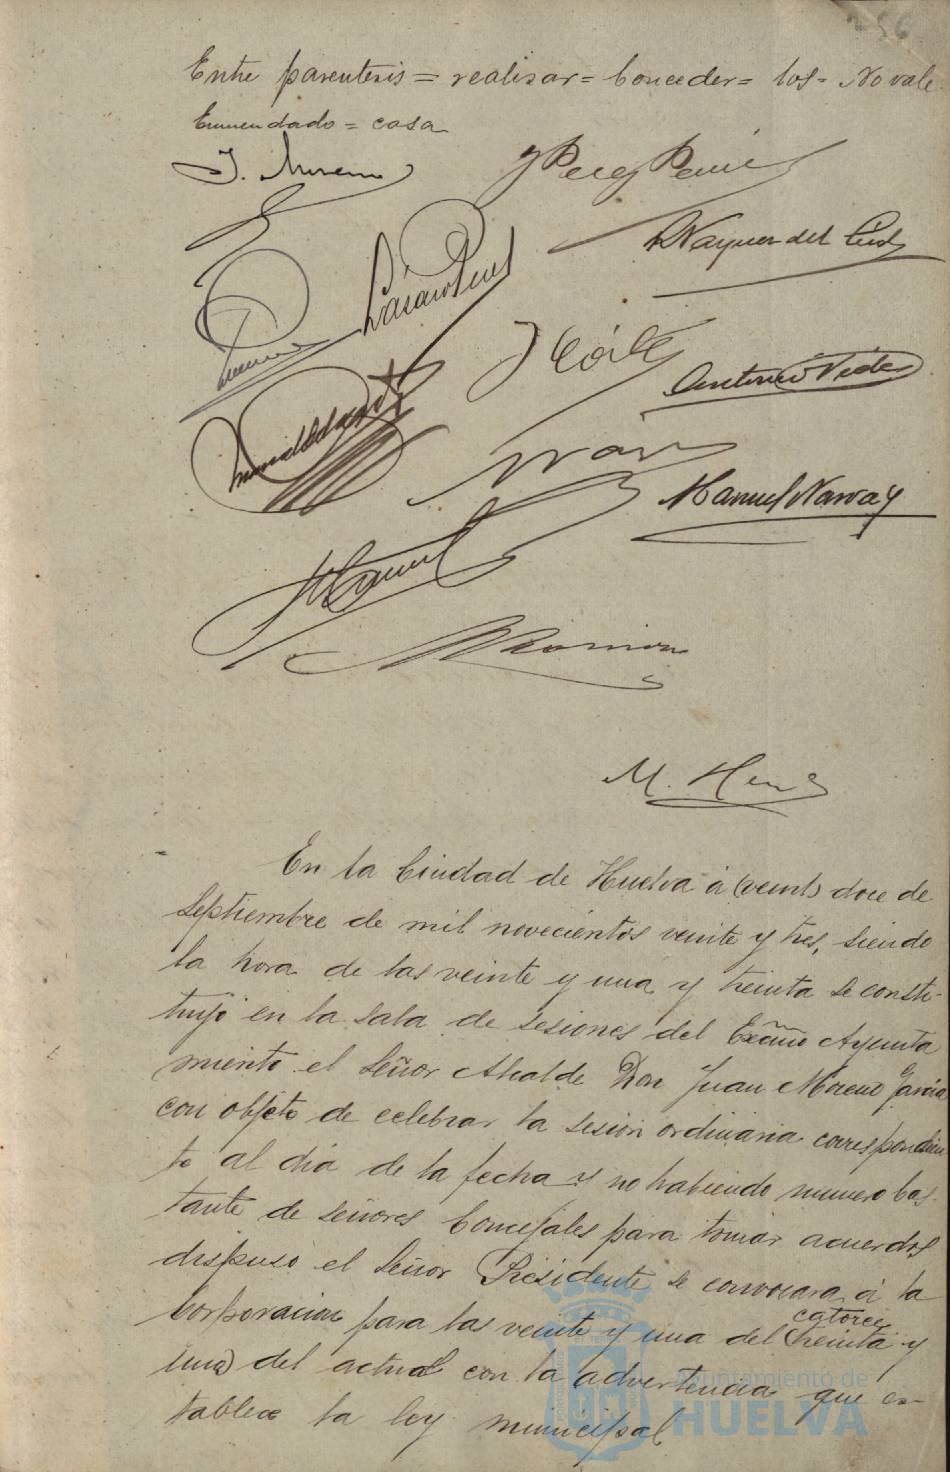 256
Entre parentesis = realizar = Conceder = los = No vale
Enmendado = casa
J. Moreno
J Perez
Vazquez del
Lázaro Perez
J Cói
Antonio Vides
Manuel Narvaez
M.
En la Ciudad de Huelva á (veint) doce de
Septiembre de mil novecientos veinte y tres, siendo
la hora de las veinte y una y treinta se consti-
tuyó en la sala de sesiones del Excmo Ayunta
miento el Señor Alcalde Don Juan Moreno García
con objeto de celebrar la sesion ordinaria correspondien
te al dia de la fecha y no habiendo numero bas-
tante de señores Concejales para tomar acuerdos
dispuso el Señor Presidente se convocara á la
Corporacion para las veinte y una del (treinta y
catorce
uno) del actual con la advertencia que es-
tablece la ley municipal
Ayuntamiento de
HUELVA